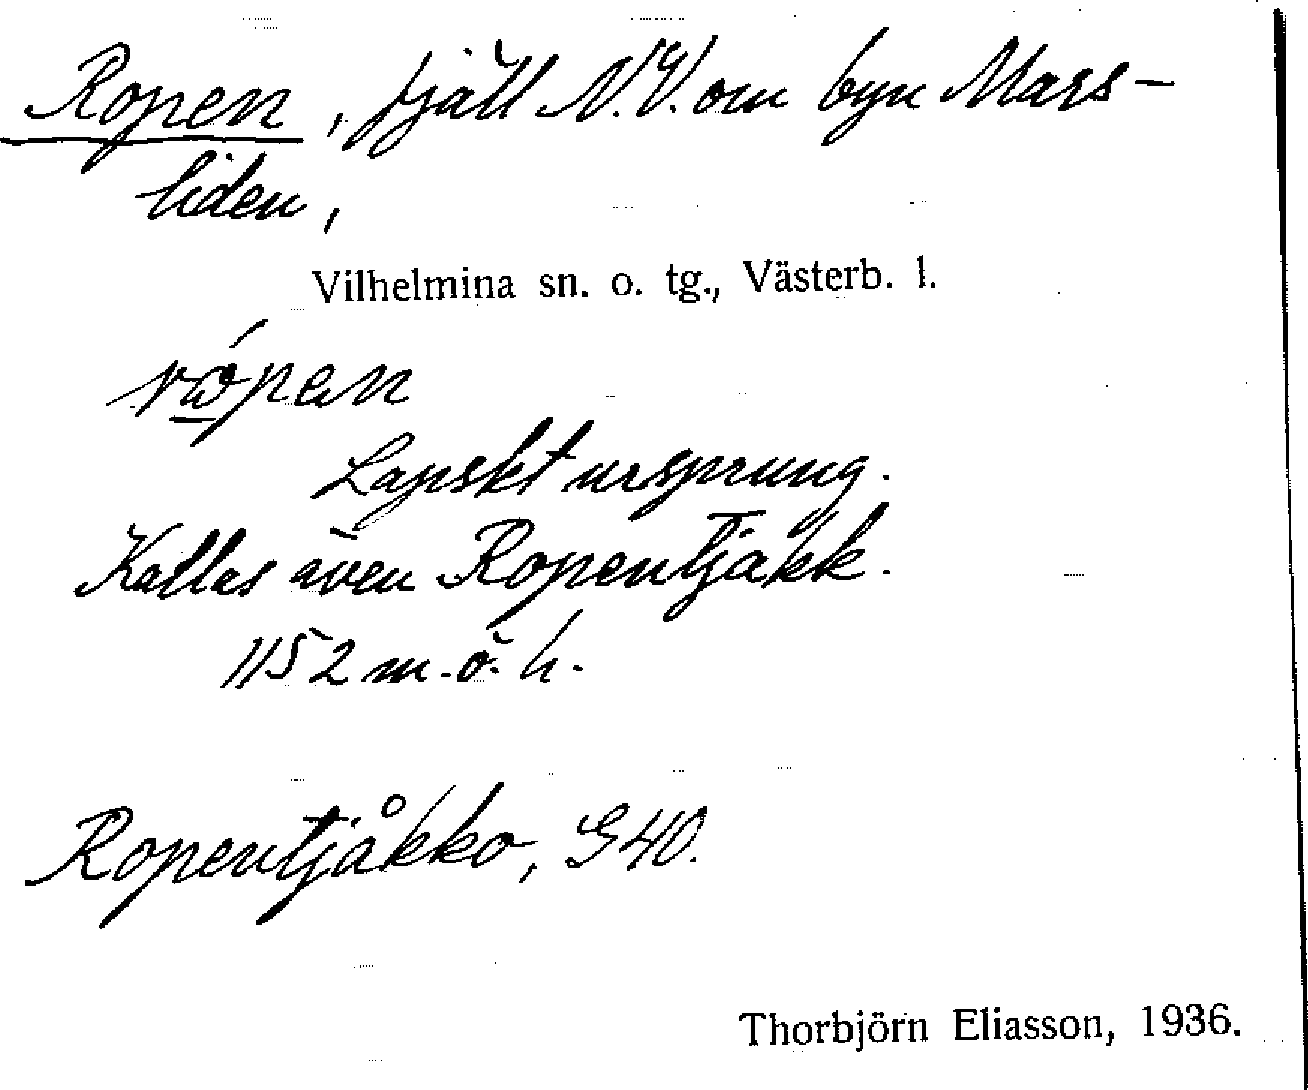 Ropen, fjäll N.V. om byn Mars-
liden,
Vilhelmina sn. o. tg., Västerb. l.
Lapskt ursprung.
Kallas även Ropentjakk.
1152 m.ö.h.
Ropentjåkko, G40.
Thorbjörn Eliasson, 1936.